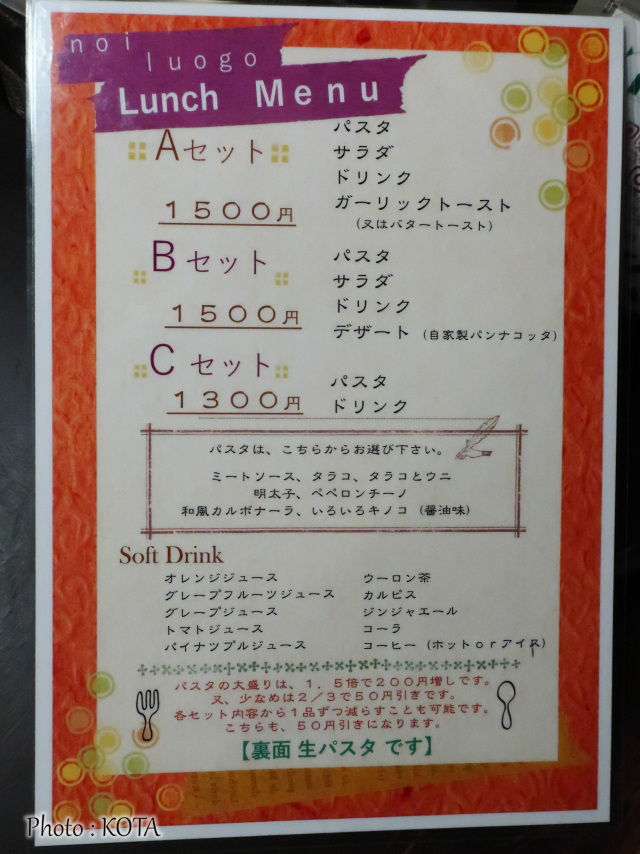 noi
luogo
Lunch Menu
Aセット
1500円
パスタ
サラダ
ドリンク
ガーリックトースト
(又はバタートースト)
Bセット
1500円
パスタ
サラダ
ドリンク
デザート (自家製パンナコッタ)
Cセット
1300円
パスタ
ドリンク
パスタは、こちらからお選び下さい。
ミートソース、タラコ、タラコとウニ
明太子、ペペロンチーノ
和風カルボナーラ、いろいろキノコ (醤油味)
Soft Drink
オレンジジュース
グレープフルーツジュース
グレープジュース
トマトジュース
パイナップルジュース
ウーロン茶
カルピス
ジンジャエール
コーラ
コーヒー (ホットorアイス)
パスタの大盛りは、1.5倍で200円増しです。
又、少なめは2/3で50円引きです。
各セット内容から1品ずつ減らすことも可能です。
こちらも、50円引きになります。
【裏面 生パスタ です】
Photo : KOTA